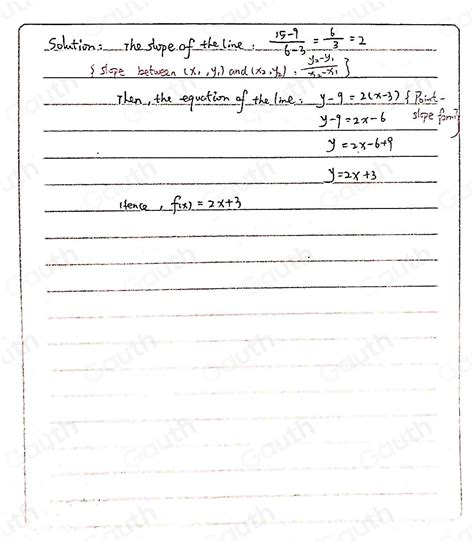 Solution: The slope of the line: (15-9)/(6-3) = 6/3 = 2
{ slope between (x₁, y₁) and (x₂, y₂): (y₂-y₁)/(x₂-x₁) }
Then, the equation of the line: y-9 = 2(x-3) { Point-
slope form }
y-9 = 2x-6
y = 2x-6+9
y = 2x+3
Hence, f(x) = 2x+3
Gauth